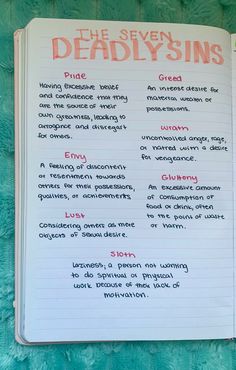 THE SEVEN
DEADLY SINS
Pride
Having excessive belief
and confidence that they
are the source of their
own greatness, leading to
arrogance and disregard
for others.
Greed
An intense desire for
material wealth or
possessions.
Wrath
uncontrolled anger, rage,
or hatred with a desire
for vengeance.
Envy
A feeling of discontent
or resentment towards
others for their possessions,
qualities, or achievements
Gluttony
An excessive amount
of consumption of
food or drink, often
to the point of waste
or harm.
Lust
Considering others as mere
objects of sexual desire.
Sloth
laziness; a person not wanting
to do spiritual or physical
work because of their lack of
motivation.